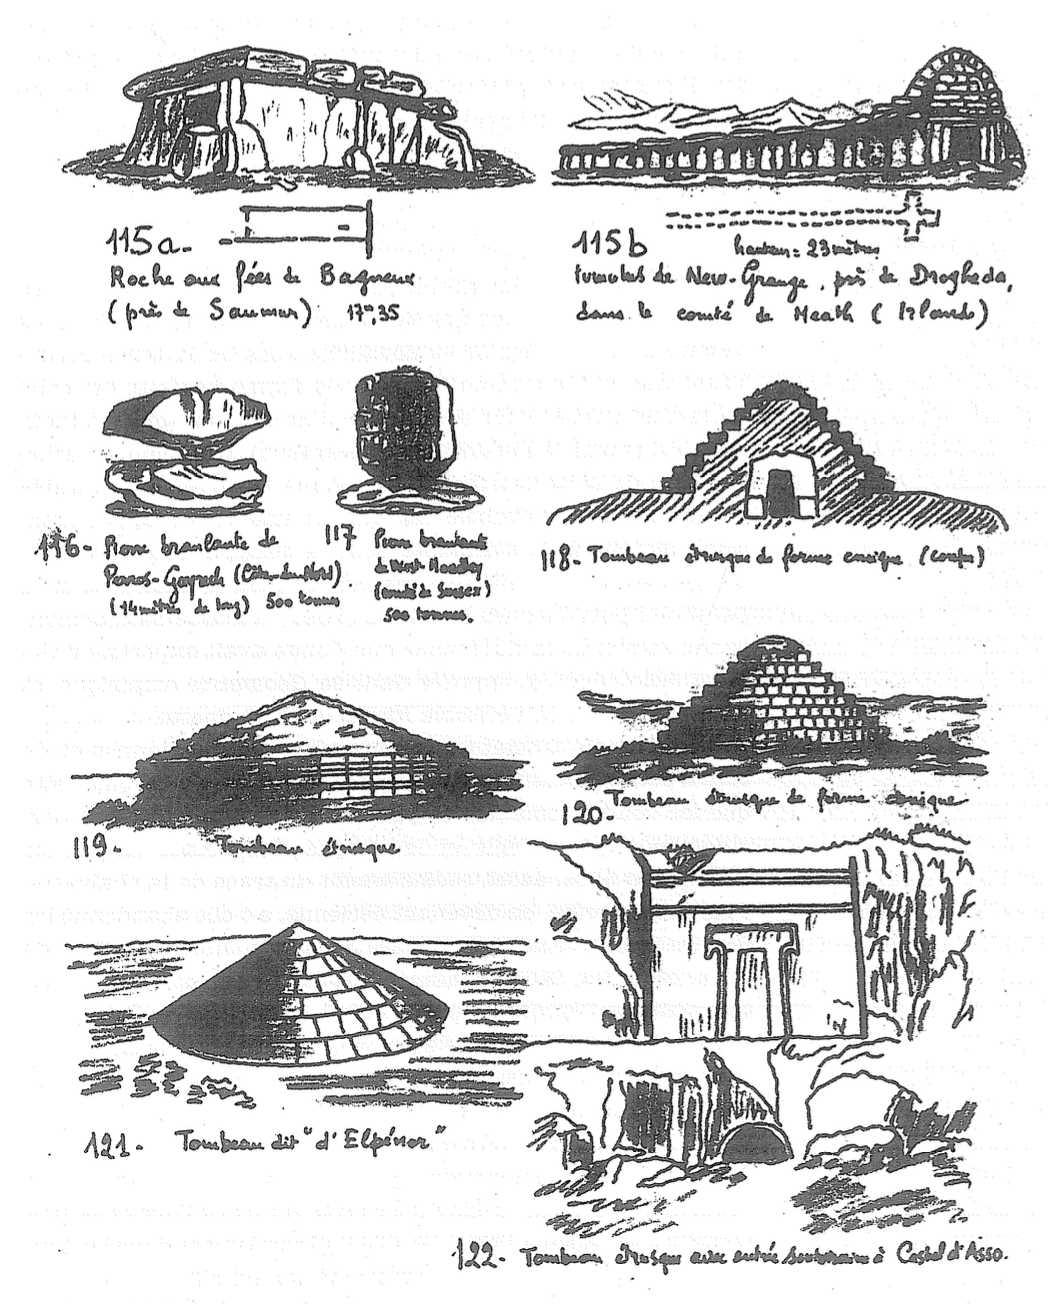 115a-
Roche aux fées de Bagneux
(près de Saumur) 17m,35
115b
hauteur = 23 mètres
tumulus de New-Grange, près de Drogheda,
dans le comté de Meath (Irlande)
116- Pierre branlante de
Perros-Guirech (Côtes-du-Nord)
(14 mètres de long) 500 tonnes
117 Pierre branlante
de West-Hoadley
(comté de Sussex)
500 tonnes.
118- Tombeau étrusque de forme conique (coupe)
119- Tombeau étrusque.
120- Tombeau étrusque de forme conique
121- Tombeau dit "d'Elpénor"
122- Tombeau étrusque avec entrée souterraine à Castel d'Asso.